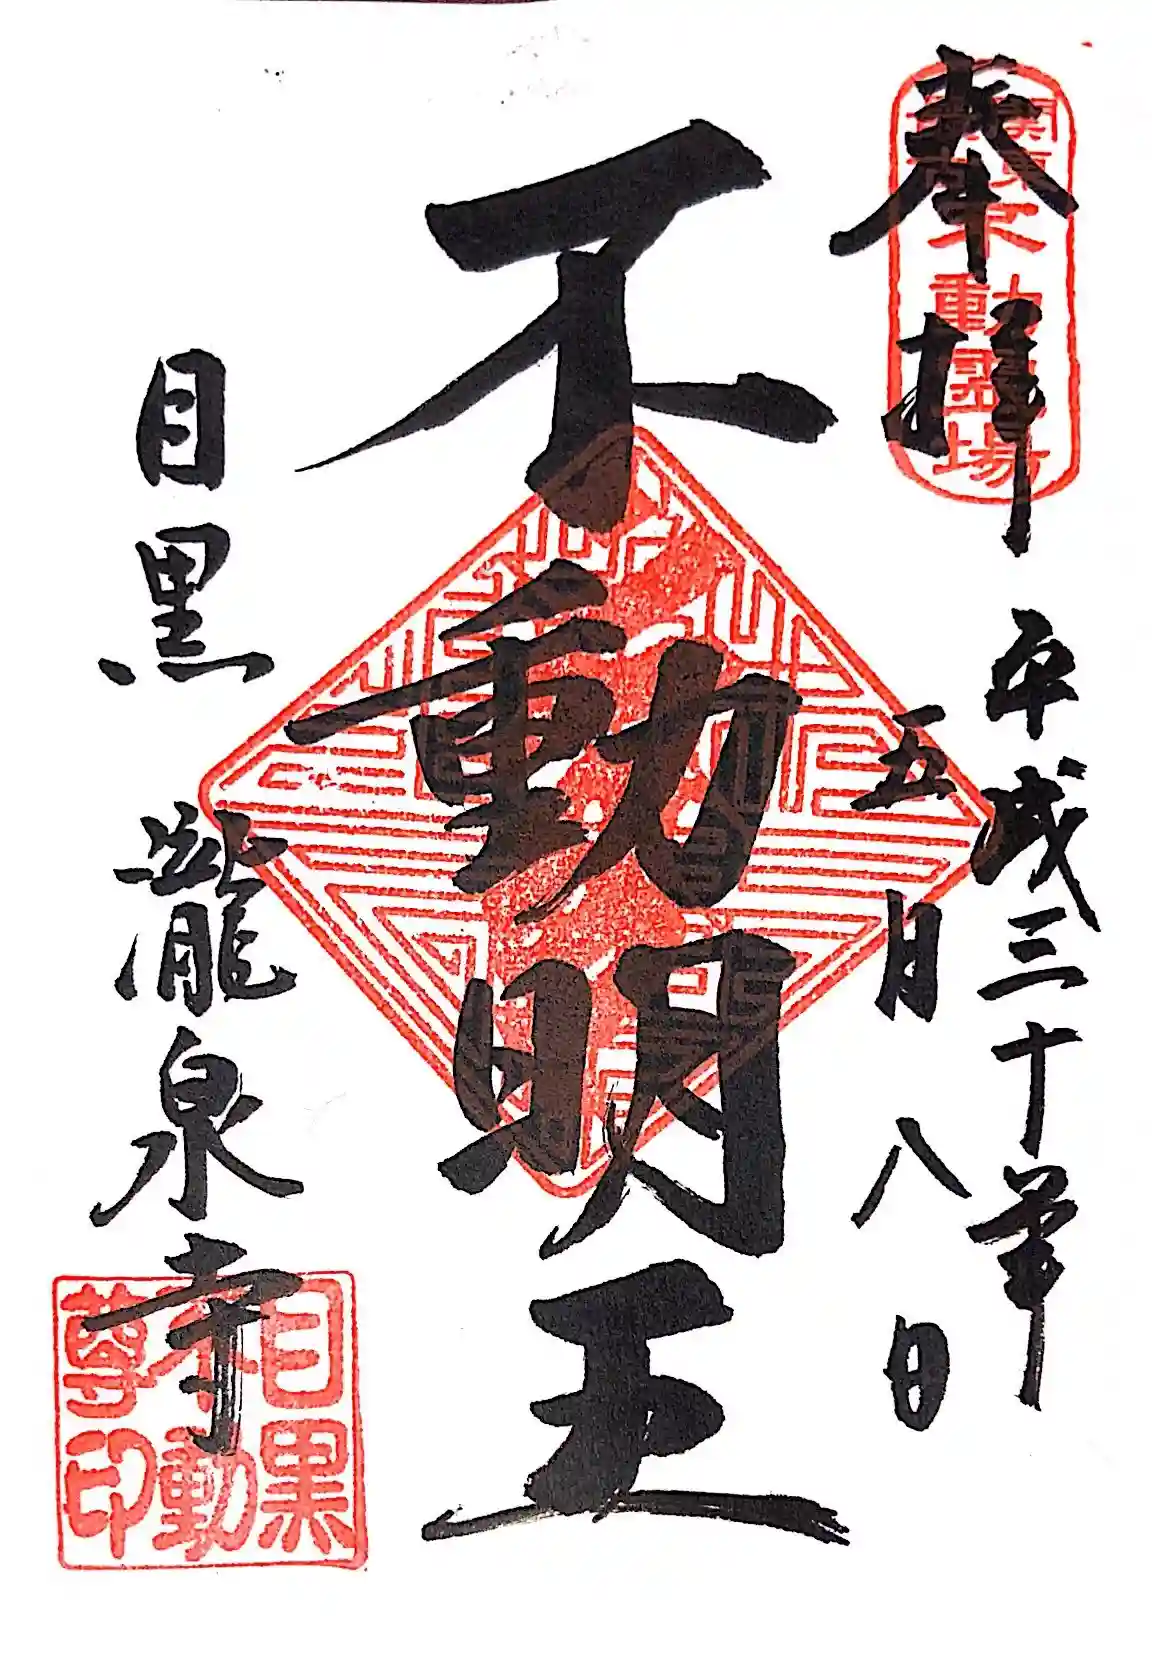 奉拝
関東
不動霊場
平成三十年
五月八日
不動明王
目黒
瀧泉寺
目黒
不動
尊印